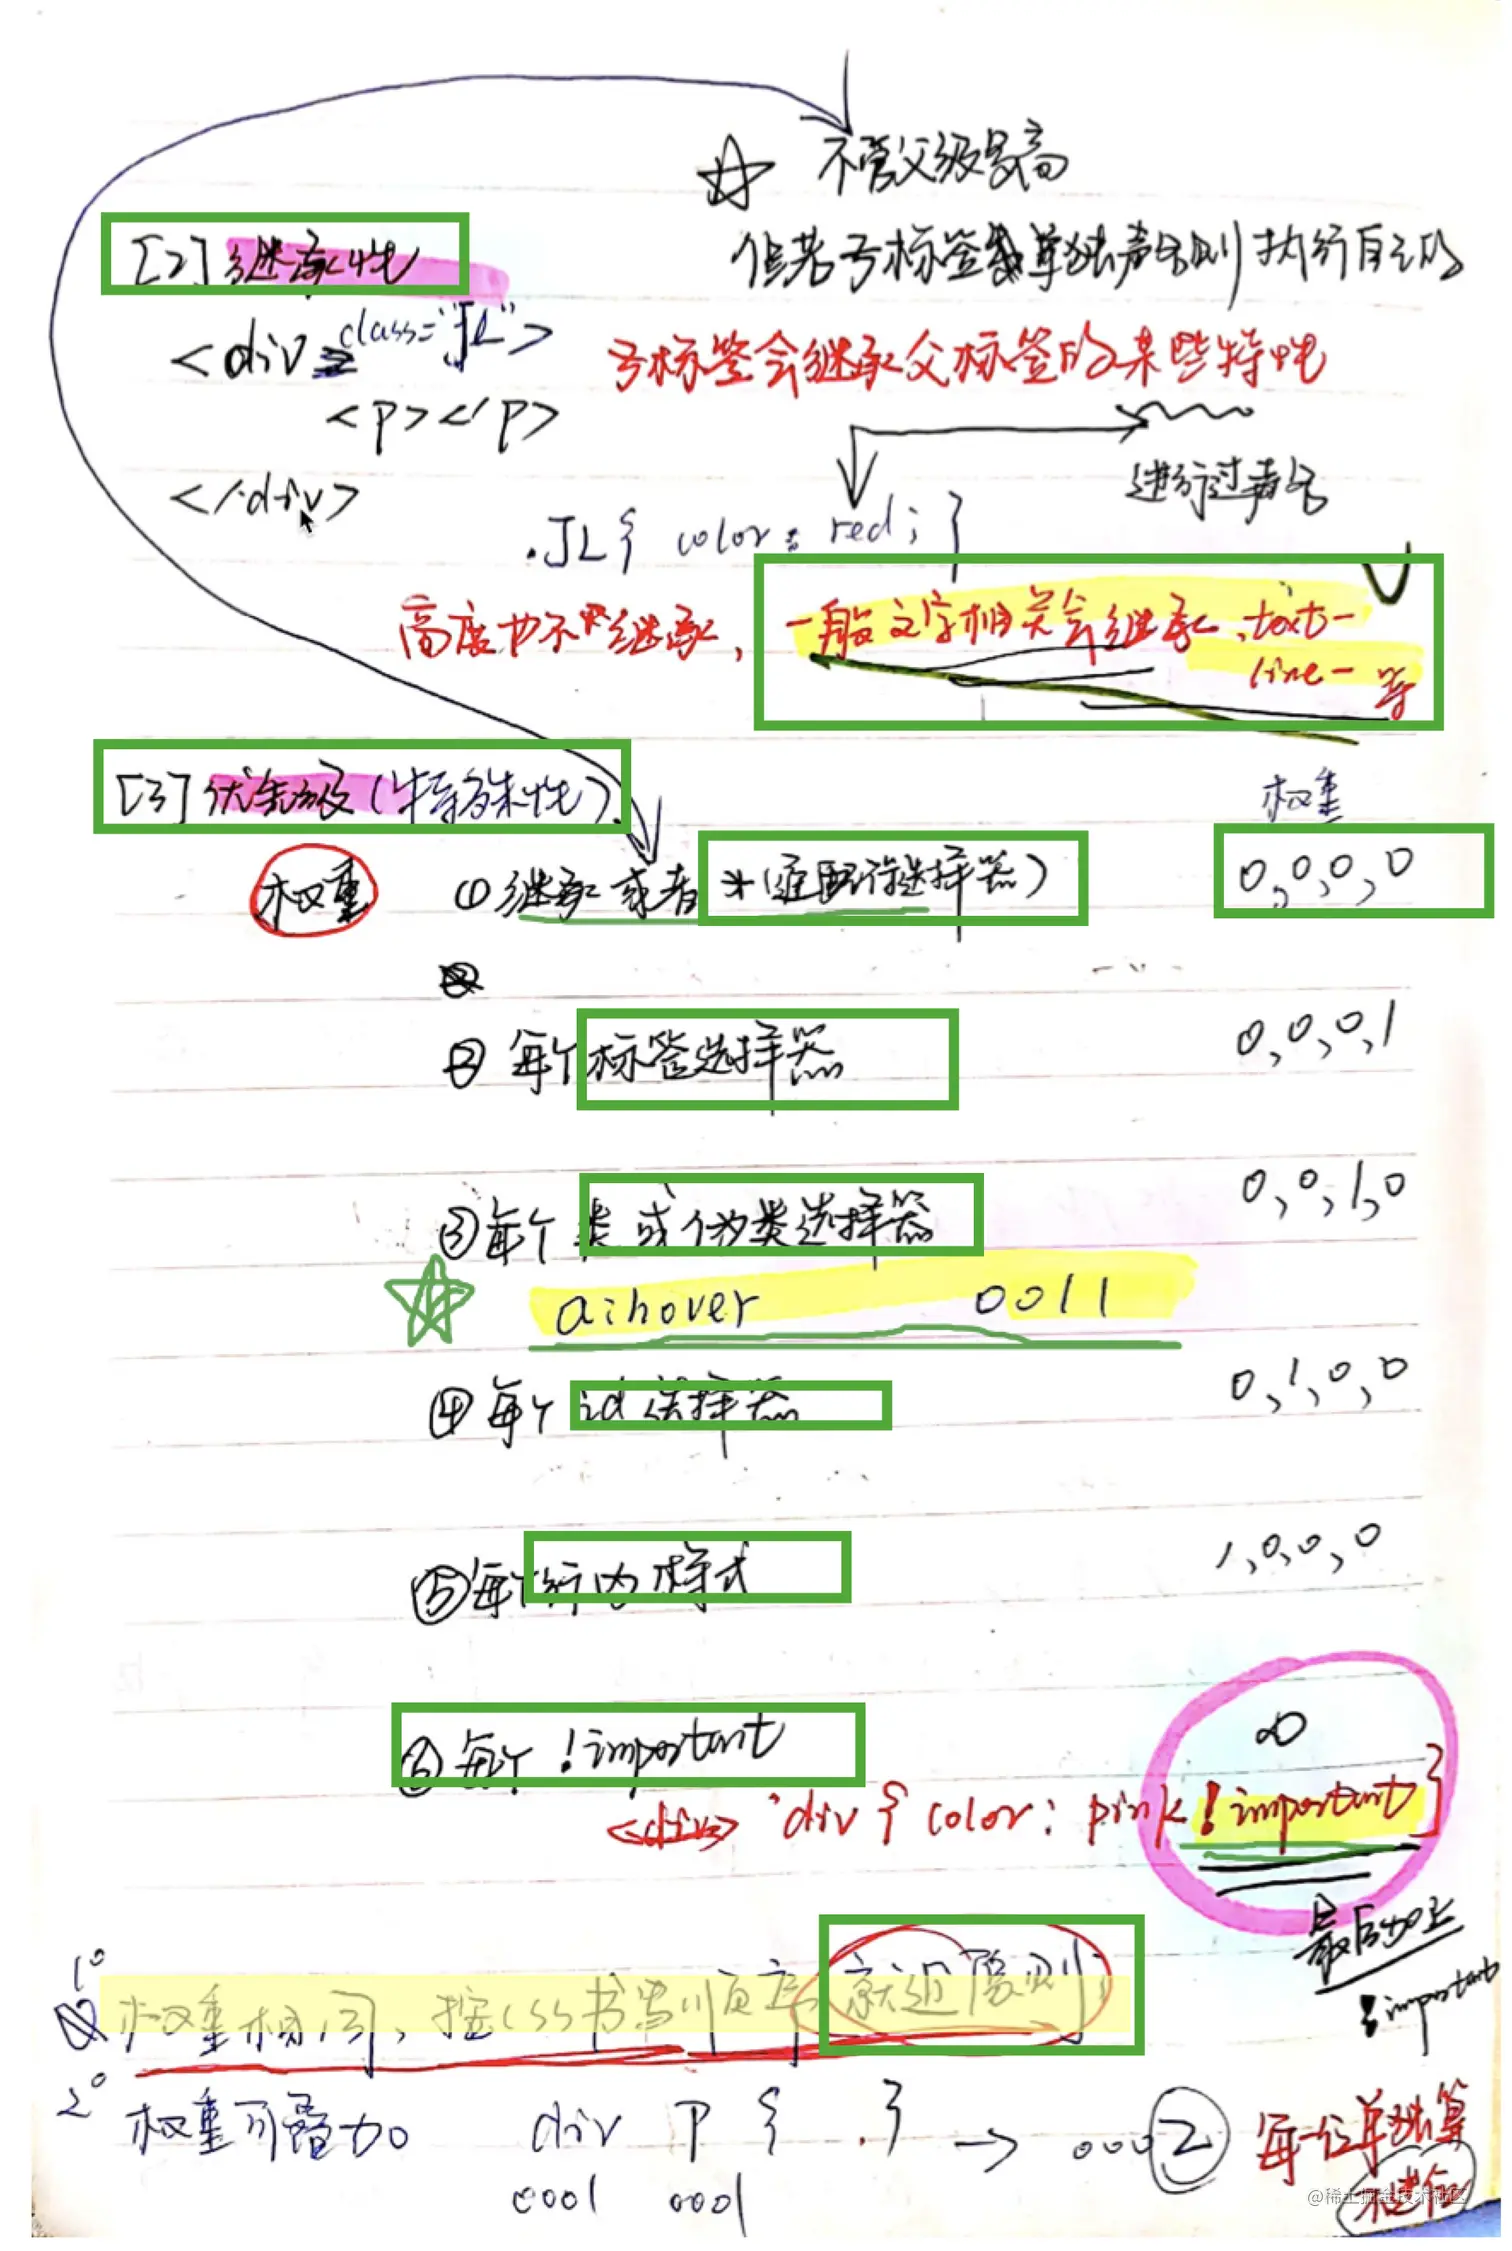 不管父级多高
但若子标签单独声名则执行自己的
[2] 继承性
<div class="JL">
子标签会继承父标签的某些特性
<p></p>
进行过声名
</div>
.JL{ color: red; }
高度也不继承,
一般文字相关会继承、text-
line- 等
[3] 优先级(特殊性)
权重
权重
①继承或者*(通配符选择器)
0,0,0,0
② 每个标签选择器
0,0,0,1
③每个类或伪类选择器
0,0,1,0
a:hover 0011
④每个id选择器
0,1,0,0
⑤每个行内样式
1,0,0,0
⑥每个!important
∞
<div> div { color: pink !important}
最后加上
!important
1°
权重相同,按css书写顺序,就近原则
2°
权重可叠加。 div p { } → 0002
0001 0001
每一位单独算
@稀土掘金技术社区